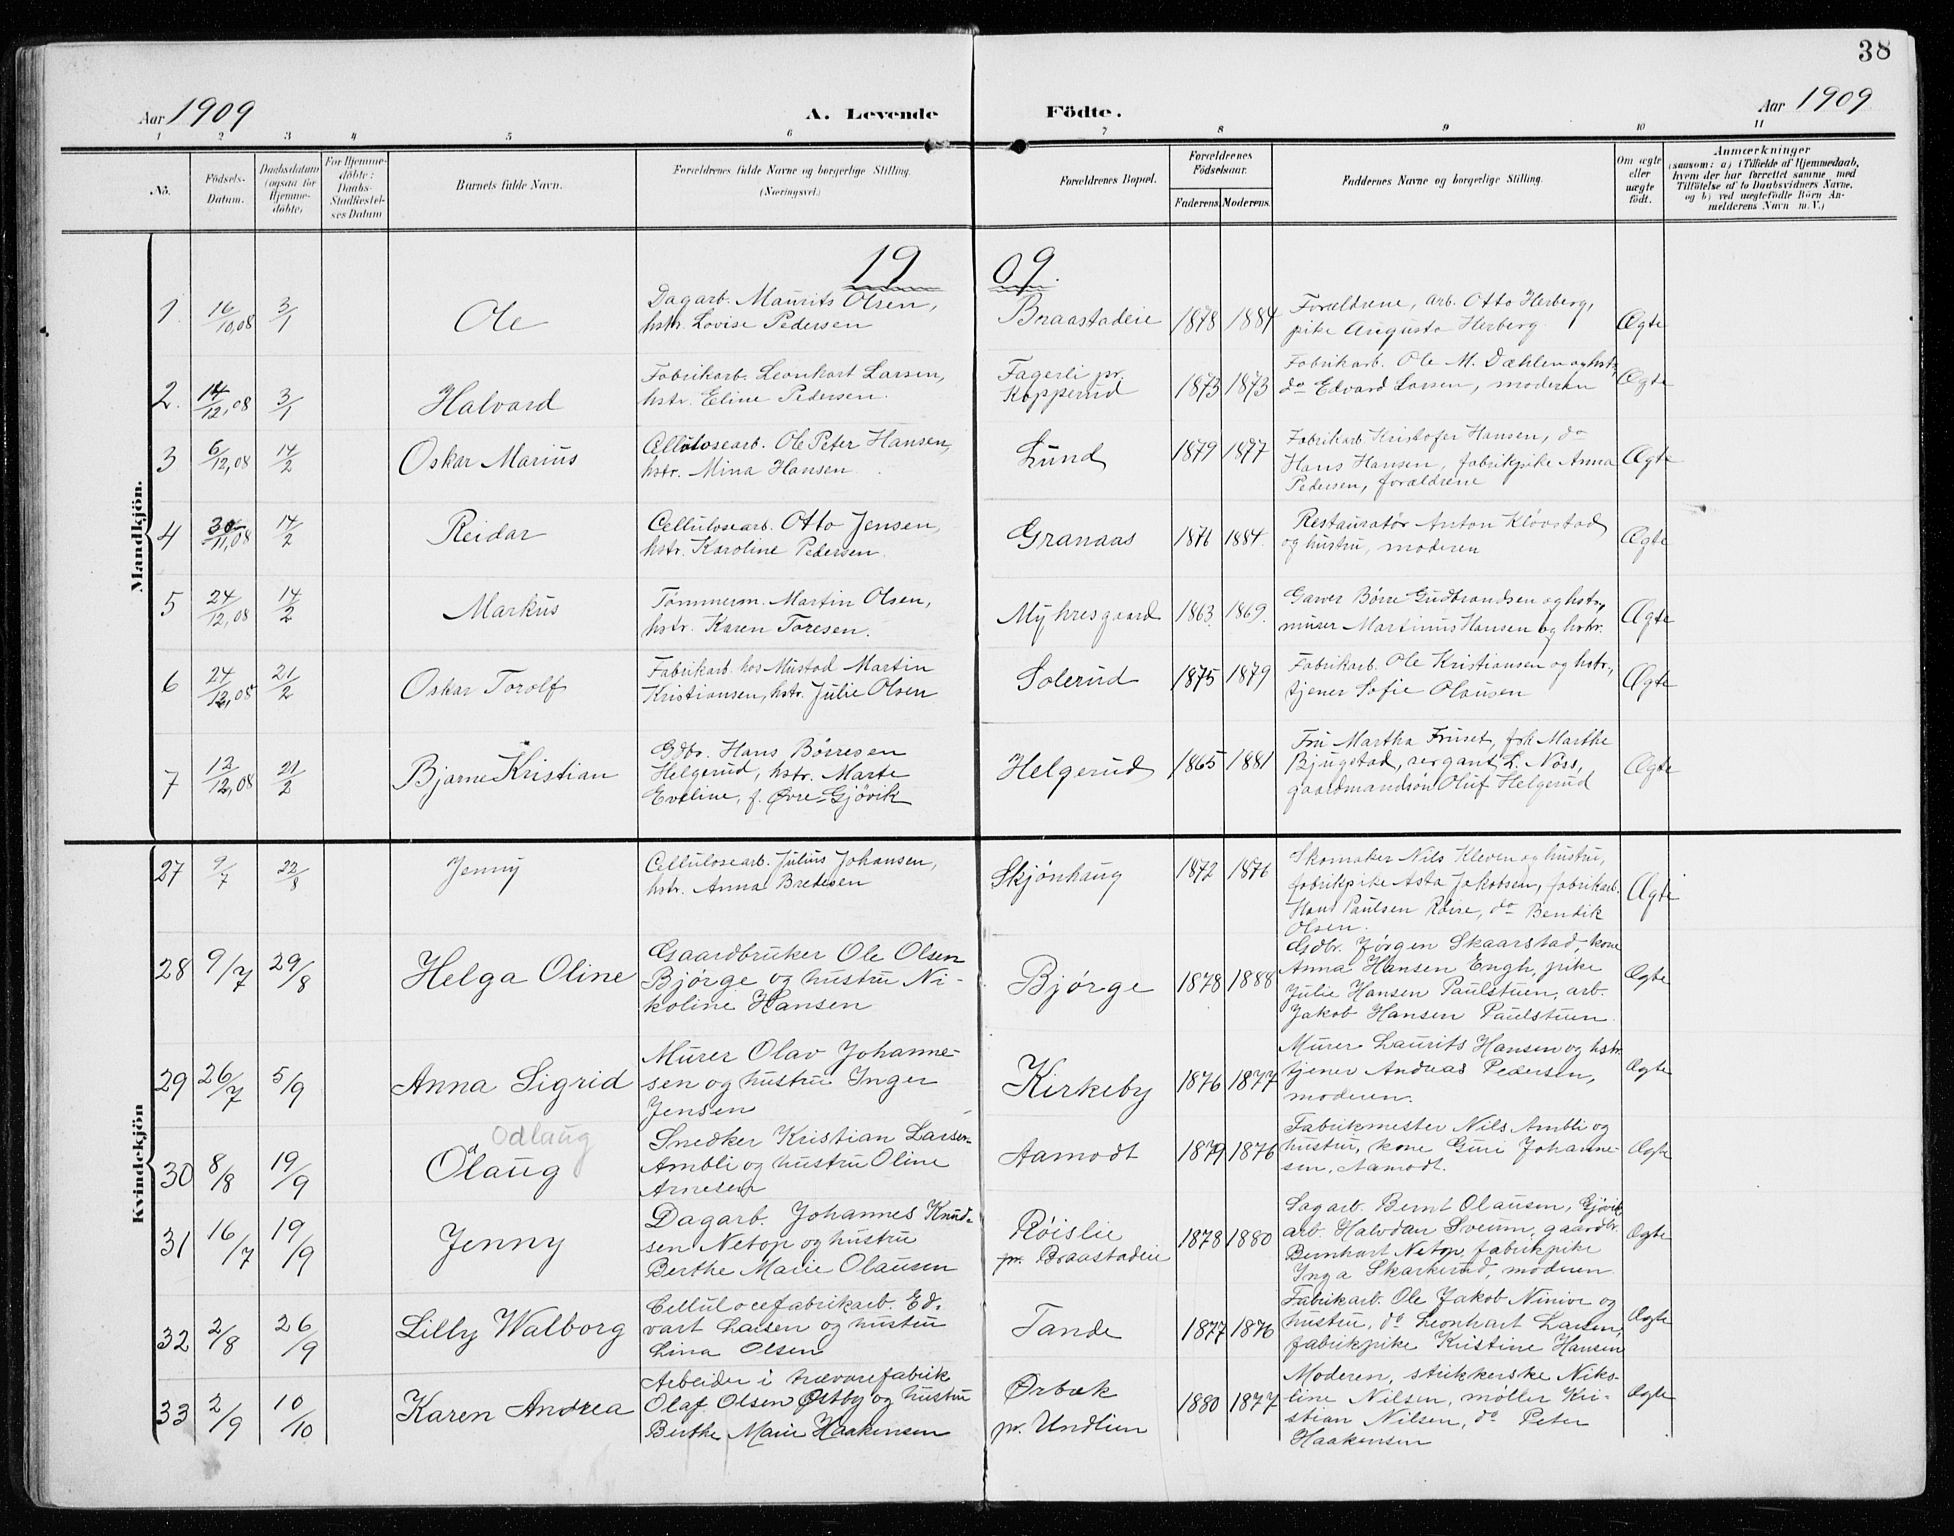 38
Aar 1909 A. Levende Födte. Aar 1909
1 2 3 4 5 6 7 8 9 10 11
No. Födsels-Datum. Daabsdatum (ogsaa for Hjemme-döbte) For Hjemme-döbte: Daabs-Stadfæstel-ses Datum Barnets fulde Navn. Forældrenes fulde Navne og borgerlige Stilling. (Næringsvei.) Forældrenes Bopæl. Forældrenes Födselsaar. Faderens. Moderens. Faddernes Navne og borgerlige Stilling. Om ægte eller uægte födt. Anmærkninger
(saasom: a) i Tilfælde af Hjemmedaab,
hvem der har forrettet samme med
Tilföielse af to Daabsvidners Navne.
og b) ved uægtefödte Börn An-
melderens Navn m. V.)
Mandkjön.
1909.
1. 16/10,08 3/1 Ole Dagarb. Maurits Olsen,
hstr. Lovise Pedersen
Braastadeie 1878 1884 Forældrene, arb. Otto Herberg,
pike Augusta Herberg. Ægte
2. 14/12,08 3/1 Halvard Fabrikarb. Leonhart Larsen,
hstr. Eline Pedersen.
Fagerli pr.
Kopperud 1873 1873 Fabrikarb. Ole M. Dæhlen og hstr,
do Edvard Larsen, moderen Ægte
3 6/12,08 14/2 Oskar Marius Cellulosearb. Ole Peter Hansen,
hstr. Mina Hansen.
Lund 1879 1877 Fabrikarb Kristofer Hansen, do
Hans Hansen, fabrikpike Anna
Pedersen, forældrene Ægte
4 30/11,08 14/2 Reidar Cellulosearb. Otto Jensen,
hstr. Karoline Pedersen.
Granaas 1876 1884. Restauratør Anton Kløvstad
og hustru, moderen Ægte
5 24/12,08 14/2 Markus Tømmerm. Martin Olsen,
hstr. Karen Toresen.
Myhresgaard 1863. 1869. Garver Børre Gudbrandsen og hstr,
murer Martinus Hansen og hstr. Ægte
6 24/12,08 21/2 Oskar Torolf Fabrikarb. hos Mustad Martin
Kristiansen, hstr. Julie Olsen
Solerud 1875 1879 Fabrikarb. Ole Kristiansen og hstr,
tjener Sofie Olausen Ægte
7 12/12,08 21/2 Bjarne Kristian Gdbr. Hans Børresen
Helgerud, hstr. Marte
Eveline, f. Øvre-Gjøvik
Helgerud 1865 1881 Fru Martha Fruset, frk Marthe
Bjugstad, sergant L. Nøss,
gaardmandsøn Oluf Helgerud Ægte
Kvindekjön
27 9/7 22/8 Jenny Cellulosearb. Julius Johansen,
hstr. Anna Bredesen
Skjønhaug 1872 1876 Skomaker Nils Kleven og hustru,
fabrikpike Asta Jakobsen, fabrikarb.
Hans Paulsen Røise, do Bendik
Olsen. Ægte
28 9/7 29/8 Helga Oline Gaardbruker Ole Olsen
Bjørge og hustru Ni-
koline Hansen
Bjørge 1878 1888 Gdbr. Jørgen Skaarstad, kone
Anna Hansen Engh, pike
Julie Hansen Paulstuen, arb.
Jakob Hansen Paulstuen. Ægte
29 26/7 5/9 Anna Sigrid Murer Olav Johanne-
sen og hustru Inger
Jensen
Kirkeby 1876 1877 Murer Laurits Hansen og hstr.
tjener Andreas Pedersen,
moderen. Ægte
Odlaug
30 8/8 19/9 Odlaug Snedker Kristian Larsen
Ambli og hustru Oline
Arnesen
Aamodt 1879 1876 Fabrikmester Nils Ambli og
hustru, kone Guri Johanne-
sen, Aamodt. Ægte
31 16/7 19/9 Jenny Dagarb. Johannes Knud-
sen Netop og hustru
Berthe Marie Olausen
Røislie
pr. Braastadeie 1878 1880 Sagarb. Bernt Olausen, Gjøvik
arb. Halvdan Sveum, gaardbr.
Bernhart Netop, fabrikpike
Inga Skarkerud, moderen Ægte
32 2/8 26/9 Lilly Walborg Cellulocefabrikarb. Ed-
vart Larsen og hustru
Lina Olsen
Tande 1877 1876 Fabrikarb. Ole Jakob Ninive og
hustru, do Leonhart Larsen,
fabrikpike Kristine Hansen Ægte
33 2/9 10/10 Karen Andrea Arbeider i trævarefabrik
Olaf Olsen Østby og hustru
Berthe Marie Haakensen
Ørbæk
pr. Undlien 1880 1877 Moderen, strikkerske Nik-
line Nilsen, møller Kri-
stian Nilsen, do Peter
Haakensen Ægte